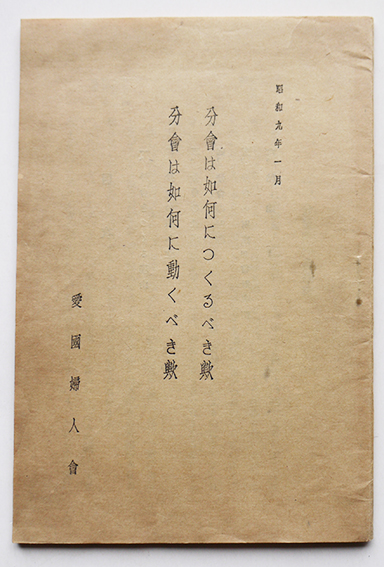 昭和九年一月
分會は如何につくるべき歟
分會は如何に動くべき歟
愛國婦人會